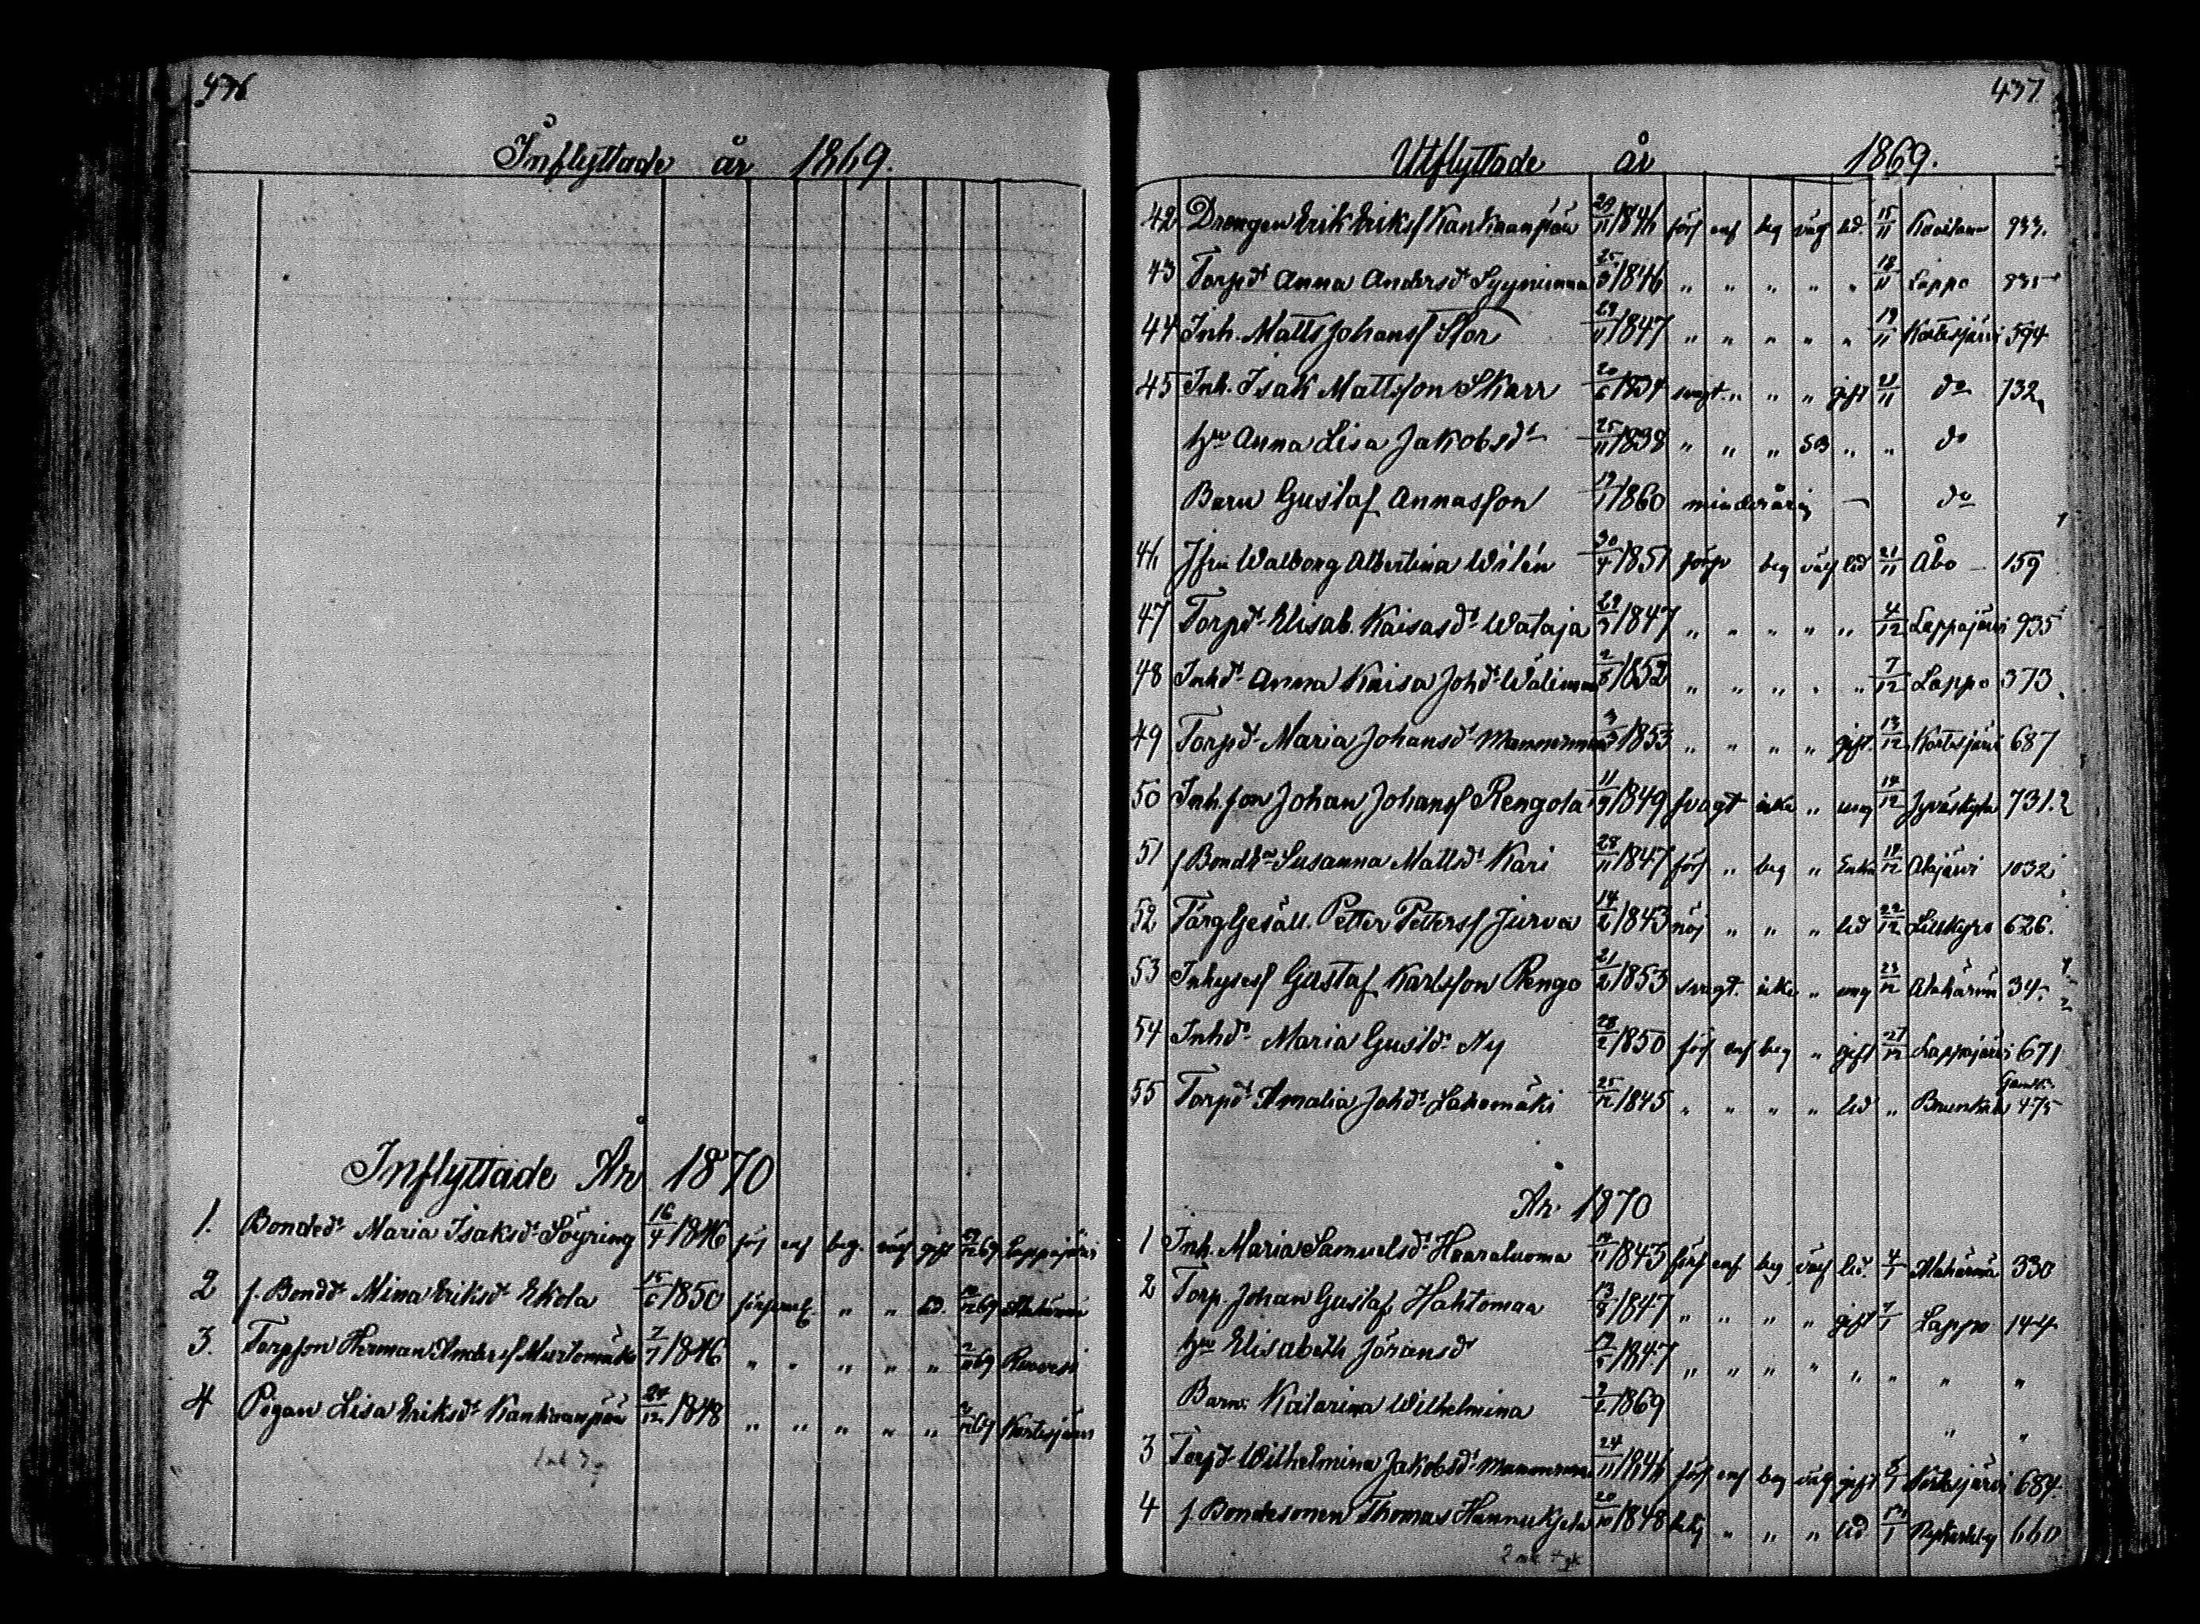 436
Inflyttade år 1869.
Inflyttade År 1870
1. Bonded:r Maria Isaksd:r Söyring 16/4 1846 förs enf beg. väg gift 69 Lappajärvi
2 f. Bondd:r Mina Eriksd:r Ekola 15/6 1850 " " led. 69 Alahärmä
3. Torpson Herman Andersf Murtomäki 7/7 1846 " " " " " 69
4 Pigan Lisa Eriksd:r Kankaanpää 24/12 1848 " " " " " 69 Kortesjärvi
437
Utflyttade år 1869.
42 Drengen Erik Eriksf Kankaanpää 29/11 1846 förs enf beg väg led. 15/11 Kauhava 933.
43 Torpd:r Anna Andersd:r 25/9 1846 " " " " " 18/11 Lappo
44 Inh. Matts Johansf Stor 29/11 1847 " " " " " 19/11 Kortesjärvi 594
45 Inh. Isak Mattsson Skarr 20/6 1834 svagt " " " gift 21/11 d:o 732
h:u Anna Lisa Jakobsd:r 25/11 1838 " " " SB " " d:o
Barn Gustaf Annasson 19/1 1860 minderårig — d:o
46 Jfrn Walborg Albertina Wilén 30/4 1851 försv beg väg led 21/11 Åbo — 159
47 Torpd:r Elisab. Kaisasd:r Wataja 29/7 1847 " " " " " 4/12 Lappajärvi 935
48 Inhd:r Anna Kaisa Johd:r 2/5 1852 " " " " " 7/12 Lappo 373
49 Torpd:r Maria Johansd:r 3/3 1853 " " " " gift. 13/12 Kortesjärvi 687
50 Inh.son Johan Johansf Rengola 11/9 1849 svagt icke " ung 14/12 Jyväskylä 731.2
51 f Bondh:n Susanna Mattsd:r Kari 28/11 1847 förs " beg " Enka 18/12 Alajärvi 1032
52 Färg Gesäll. Petter Pettersf Jurva 14/2 1843 nöj " " " led 22/12 Lillkyro 626.
53 Inhysesf Gustaf Karlsson Rengo 21/2 1853 svagt. icke " ung 23/12 Alahärmä 34.
54 Inhd:r Maria Gustd:r Ny 28/2 1850 förs enf beg " gift 27/12 Lappajärvi 671
55 Torpd:r Amalia Johd:r Lahomäki 25/12 1845 " " " " led " 475
År 1870
1 Inh. Maria Samuelsd:r Haaraluoma 14/11 1843 förs enf beg väg led. 4/1 Alahärmä 330
2 Torp. Johan Gustaf Hahtomaa 13/9 1847 " " " " gift 7/1 Lappo 144
h:u Elisabeth Göransd:r 1847 " " " " " " " "
Barn: Katarina Wilhelmina 2/2 1869 " "
3 Torpd:r Wilhelmina Jakobsd:r 24/11 1846 förs enf beg väg gift 8/1 Kortesjärvi 684.
4 f. Bondesonen Thomas 20/10 1848 " " " led 660